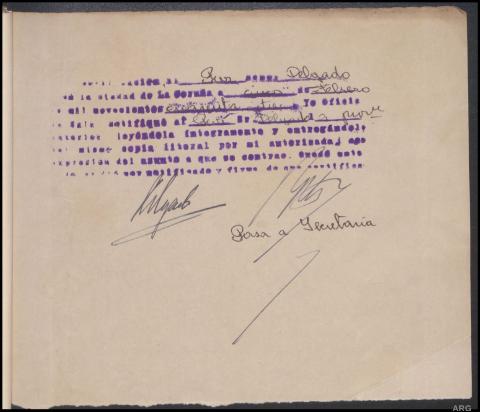 Procu Señor Delgado
en la ciudad de La Coruña a cinco de Febrero
de mil novecientos Yo oficial
de Sala notifiqué al Procu Sr Delgado
anterior leyéndola íntegramente y entregándole
del mismo copia literal por mi autorizada, con
expresión del asunto a que se contrae. Quedó ente
notificado y firma de que certifico
Delgado
Pasa a Secretaria
ARG